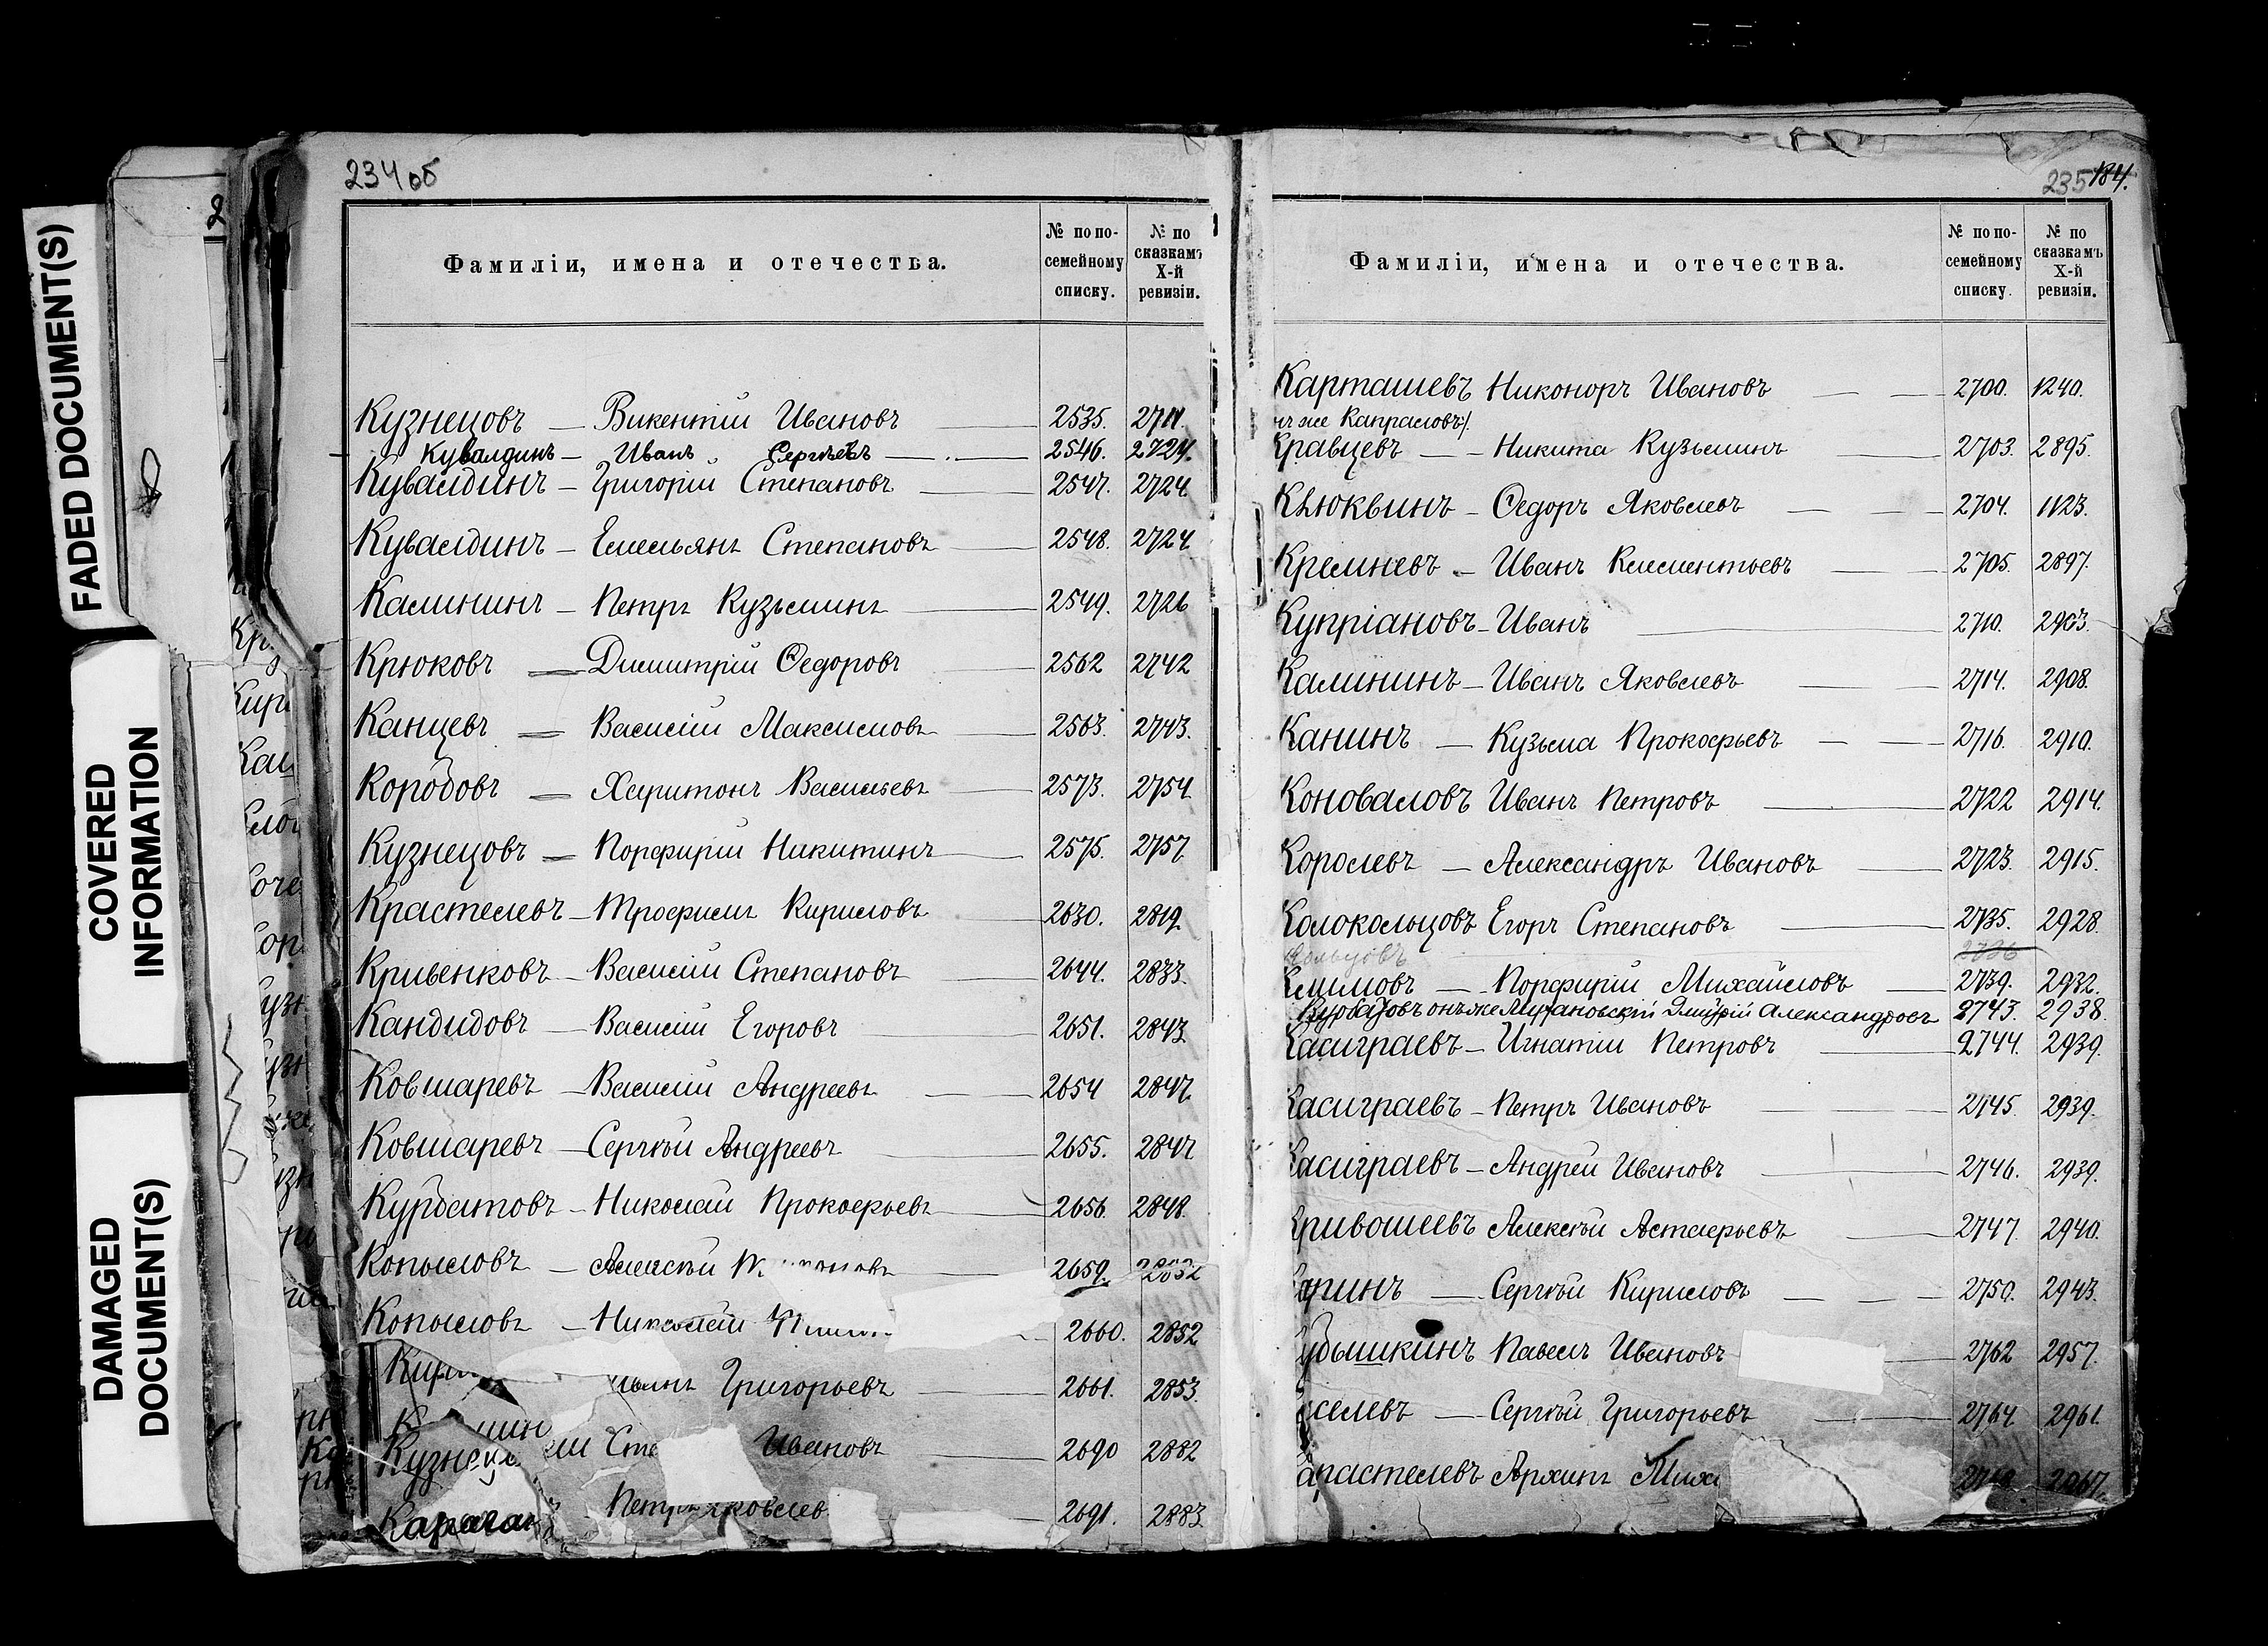 FADED DOCUMENT(S)
COVERED
INFORMATION
DAMAGED
DOCUMENT(S)
234 об
Фамиліи, имена и отечества. № по по-семейному списку. № по сказкамъ X-й ревизіи.
Кузнецовъ — Викентій Ивановъ — 2535. 2711.
Кувалдинъ — Иванъ Сергѣевъ — 2546. 2724.
Кувалдинъ — Григорій Степановъ — 2547. 2724.
Кувалдинъ — Емельянъ Степановъ — 2548. 2724.
Калининъ — Петръ Кузьминъ — 2549. 2726
Крюковъ — Димитрій Ѳедоровъ — 2562 2742
Канцевъ — Василій Максимовъ — 2563. 2743.
Коробовъ — Харитонъ Васильевъ — 2573. 2754.
Кузнецовъ — Порфирій Никитинъ — 2575. 2757.
Крастелевъ — Трофимъ Кириловъ — 2630. 2819.
Кривенковъ — Василій Степановъ — 2644. 2833.
Кандидовъ — Василій Егоровъ — 2651. 2843.
Ковшаревъ — Василій Андреевъ — 2654 2847.
Ковшаревъ — Сергѣй Андреевъ — 2655. 2847
Курбатовъ — Николай Прокофьевъ — 2656. 2848.
Копыловъ — Алексѣй — 2659. 2852
Копыловъ — Николай — 2660. 2852
Григорьевъ — 2661. 2853.
Ивановъ — 2690 2882
Кузнец
Петръ Яковлев — 2691. 2883.
235 184.
Фамиліи, имена и отечества. № по по-семейному списку. № по сказкамъ X-й ревизіи.
Карташевъ Никоноръ Ивановъ — 2700. 1240.
нъ же Капраловъ/.
Кравцевъ — Никита Кузьминъ — 2703. 2895.
Клюквинъ — Ѳедоръ Яковлевъ — 2704. 1123.
Кремневъ — Иванъ Клементьевъ — 2705. 2897.
Купріановъ — Иванъ — 2710. 2903.
Калининъ — Иванъ Яковлевъ — 2714. 2908.
Канинъ — Кузьма Прокофьевъ — 2716. 2910.
Коноваловъ Иванъ Петровъ — 2722 2914.
Королевъ — Александръ Ивановъ — 2723. 2915.
Колокольцовъ Егоръ Степановъ — 2735. 2928.
Кольцовъ 2736
Климовъ — Порфирій Михайловъ — 2739. 2932.
Курбатовъ онъ же Дмитрій Александровъ 2743. 2938.
Касиграевъ — Игнатій Петровъ — 2744. 2939.
Касиграевъ — Петръ Ивановъ — 2745. 2939.
Касиграевъ — Андрей Ивановъ — 2746. 2939.
Кривошеевъ Алексѣй Астафьевъ — 2747. 2940.
ринъ — Сергѣй Кириловъ — 2750. 2943.
убышкинъ Павелъ Ивановъ — 2762 2957.
селевъ — Сергѣй Григорьевъ — 2764. 2961.
растелевъ Архипъ Миха 2967.